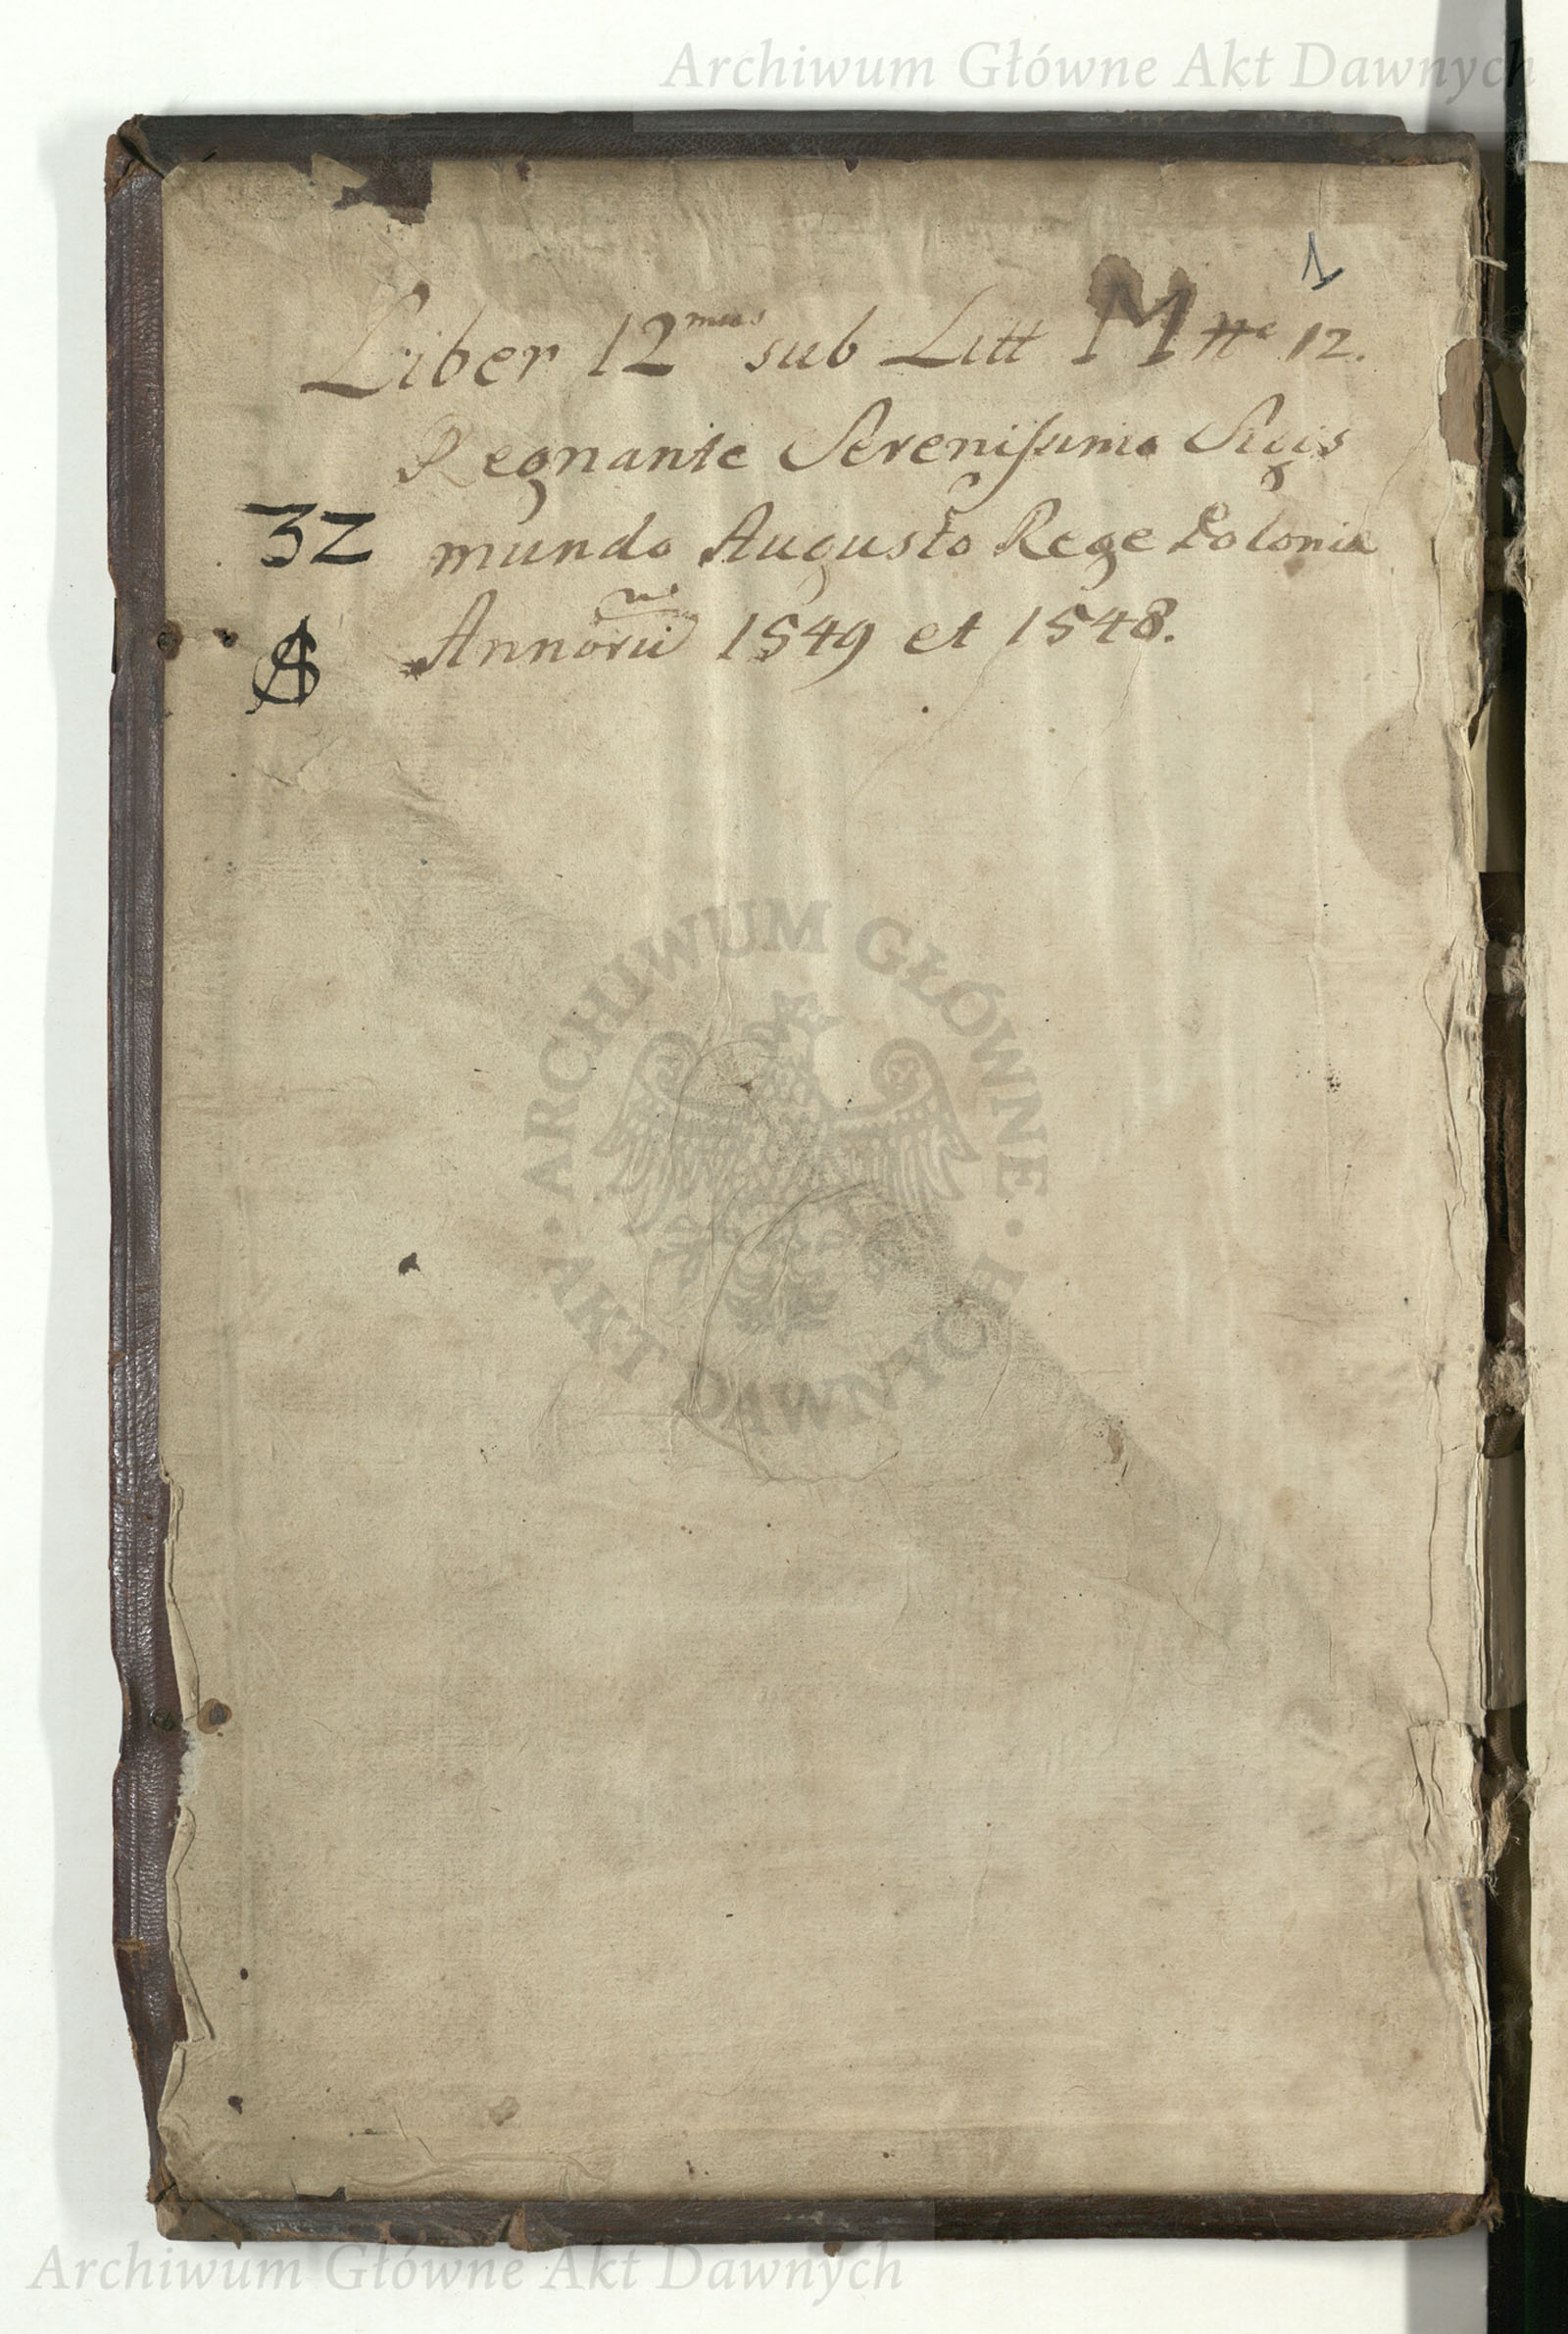 Archiwum Główne Akt Dawnych
1
Liber 12mus sub Litt M 12.
Regnante Serenissimo Sigis
32 mundo Augusto Rege Polonia
Annorũ 1549 et 1548.
ARCHIWUM GŁÓWNE AKT DAWNYCH
Archiwum Główne Akt Dawnych